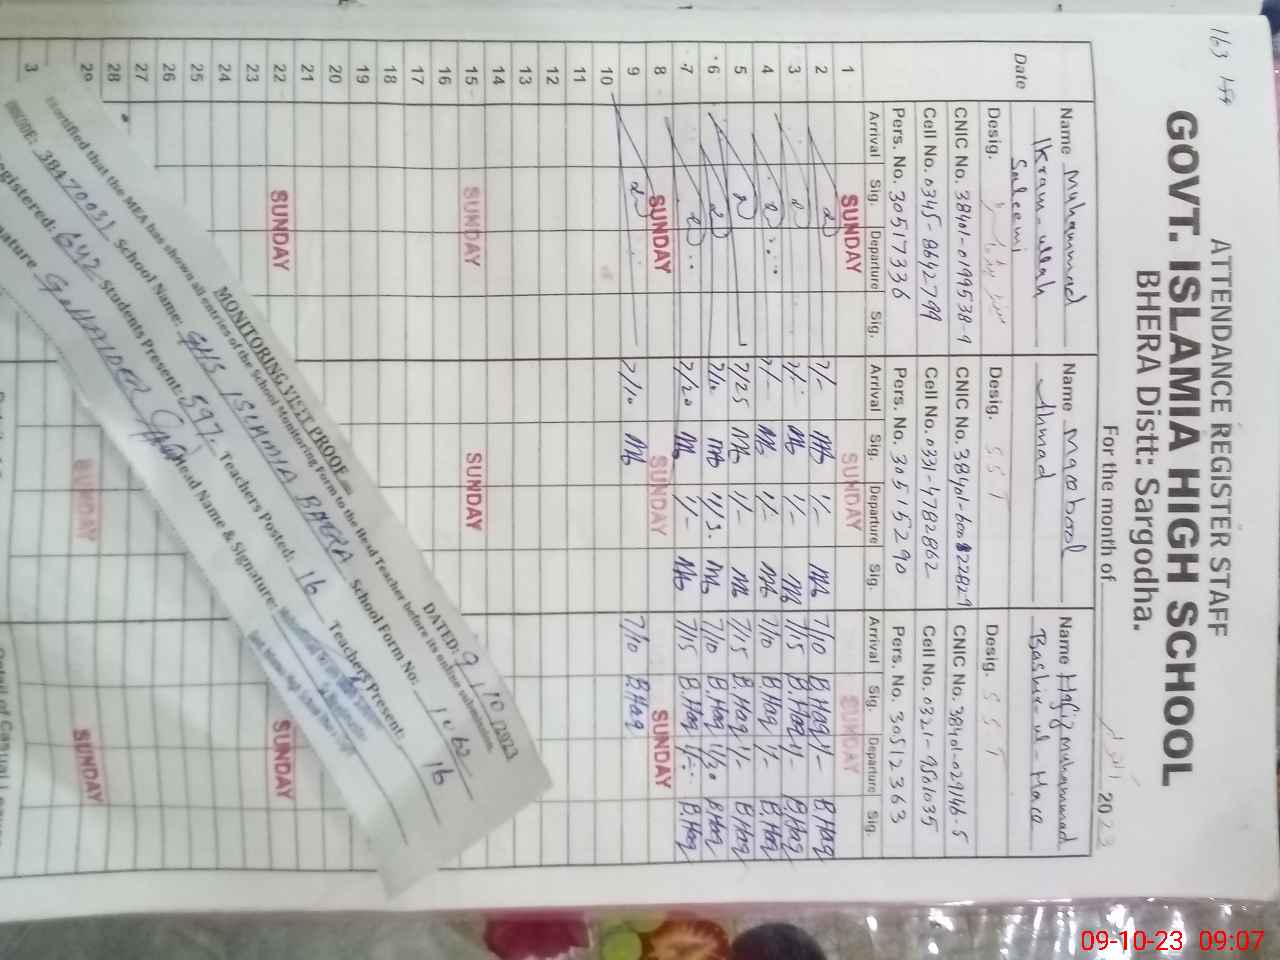 163
ATTENDANCE REGISTER STAFF
GOVT. ISLAMIA HIGH SCHOOL
BHERA Distt: Sargodha.
For the month of اکتوبر 2023
Date
Name Muhammad Ikram-ullah Saleemi
Desig.
CNIC No. 38401-0199538-9
Cell No. 0345-8642799
Pers. No. 30517336
Arrival Sig. Departure Sig.
Name Maqbool Ahmad
Desig. SST
CNIC No.
Cell No. 0331-4782862
Pers. No. 30515290
Arrival Sig. Departure Sig.
Name Hafiz Muhammad Bashir-ul-Haq
Desig. SST
CNIC No. 38401-029146-5
Cell No. 0321-9561035
Pers. No. 30512363
Arrival Sig. Departure Sig.
1 SUNDAY SUNDAY SUNDAY
2 7/- 1/- 7/10 B.Haq 1/- B.Haq
3 7/- 1/- 7/15 B.Haq 1/- B.Haq
4 7/- 1/- 7/10 B.Haq 1/- B.Haq
5 7/25 1/- 7/15 B.Haq 1/- B.Haq
6 7/10 7/10 B.Haq B.Haq
7 7/20 1/- 7/15 B.Haq 1/- B.Haq
8 SUNDAY SUNDAY SUNDAY
9 7/10 7/10 B.Haq
10
11
12
13
14
15 SUNDAY SUNDAY
16
17
18
19
20
21
22 SUNDAY SUNDAY
23
24
25
26
27
28
29 SUNDAY SUNDAY
3
MONITORING VISIT PROOF
DATED: 9/10/2023
Certified that the MEA has shown all entries of the School Monitoring Form to the Head Teacher before its online submission.
38470031 School Name: GHS ISLAMIA BHERA School Form No: 1062
Registered: 642 Students Present: 597 Teachers Posted: 16 Teachers Present: 16
G. HAIDER Head Name & Signature:
09-10-23 09:07